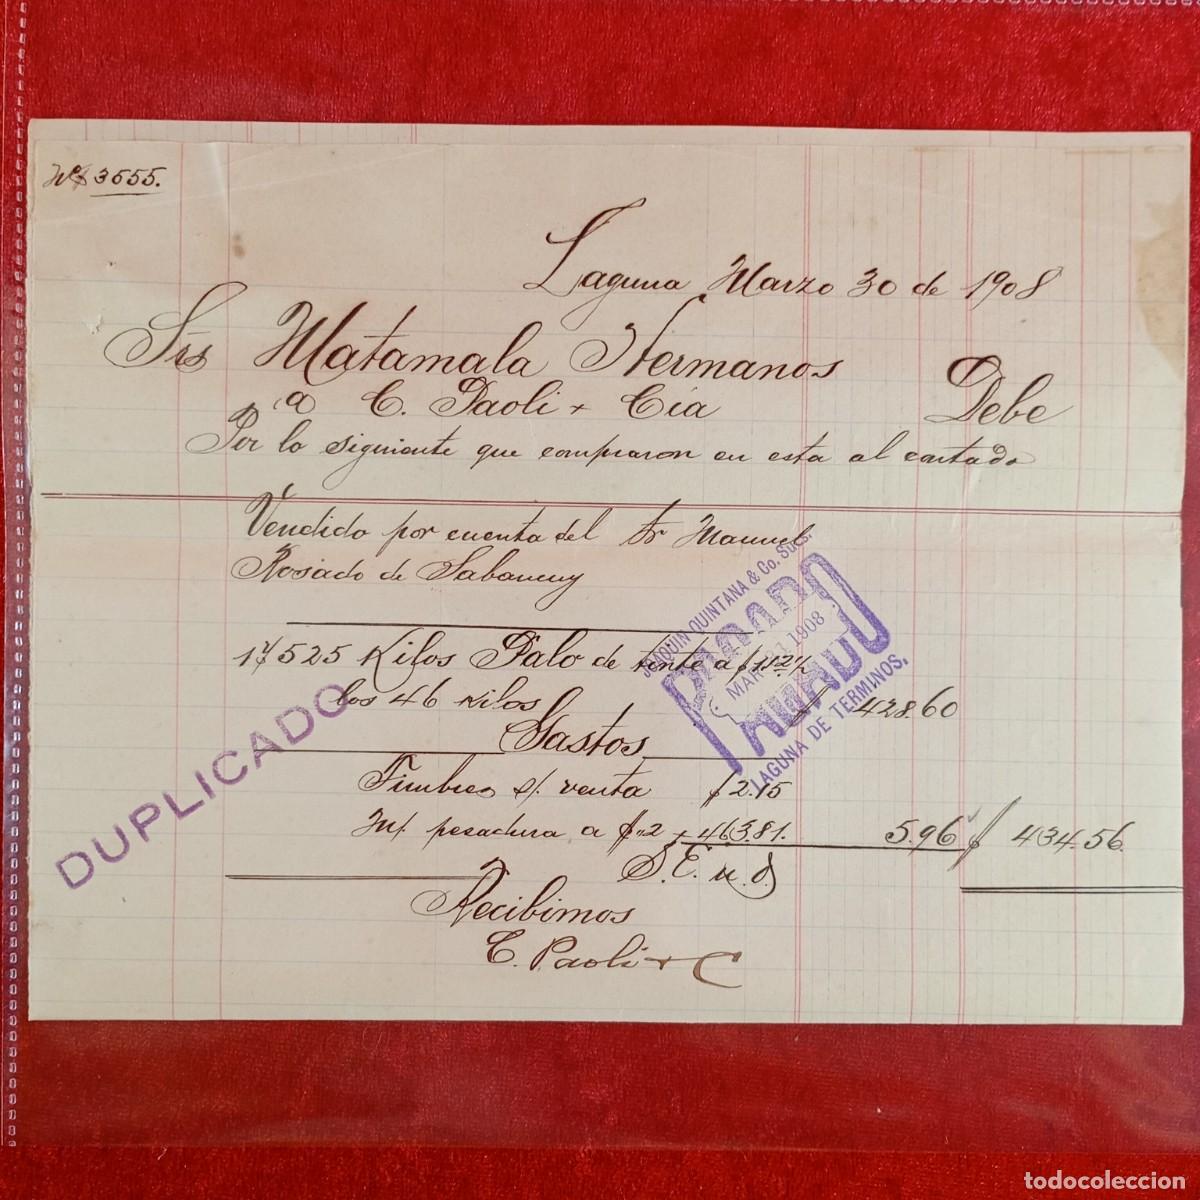 Nº 3655.
Laguna Marzo 30 de 1908
Srs Matamala Hermanos
a C. Paoli + Cía Debe
Por lo siguiente que compraron en esta al contado
Vendido por cuenta del Sr Manuel
Rosado de Sabancuy
17525 Kilos Palo de tinte a $1.12½
los 46 Kilos $ 428.60
Gastos
Timbres s/. venta $2.15
pesadura a $"2 + 46 3.81. 5.96 $ 434.56.
S. E. u. O.
Recibimos
C. Paoli + C
DUPLICADO
JOAQUIN QUINTANA & Co. Sucs.
PAGADO
MAR 31 1908
LAGUNA DE TERMINOS.
todocoleccion